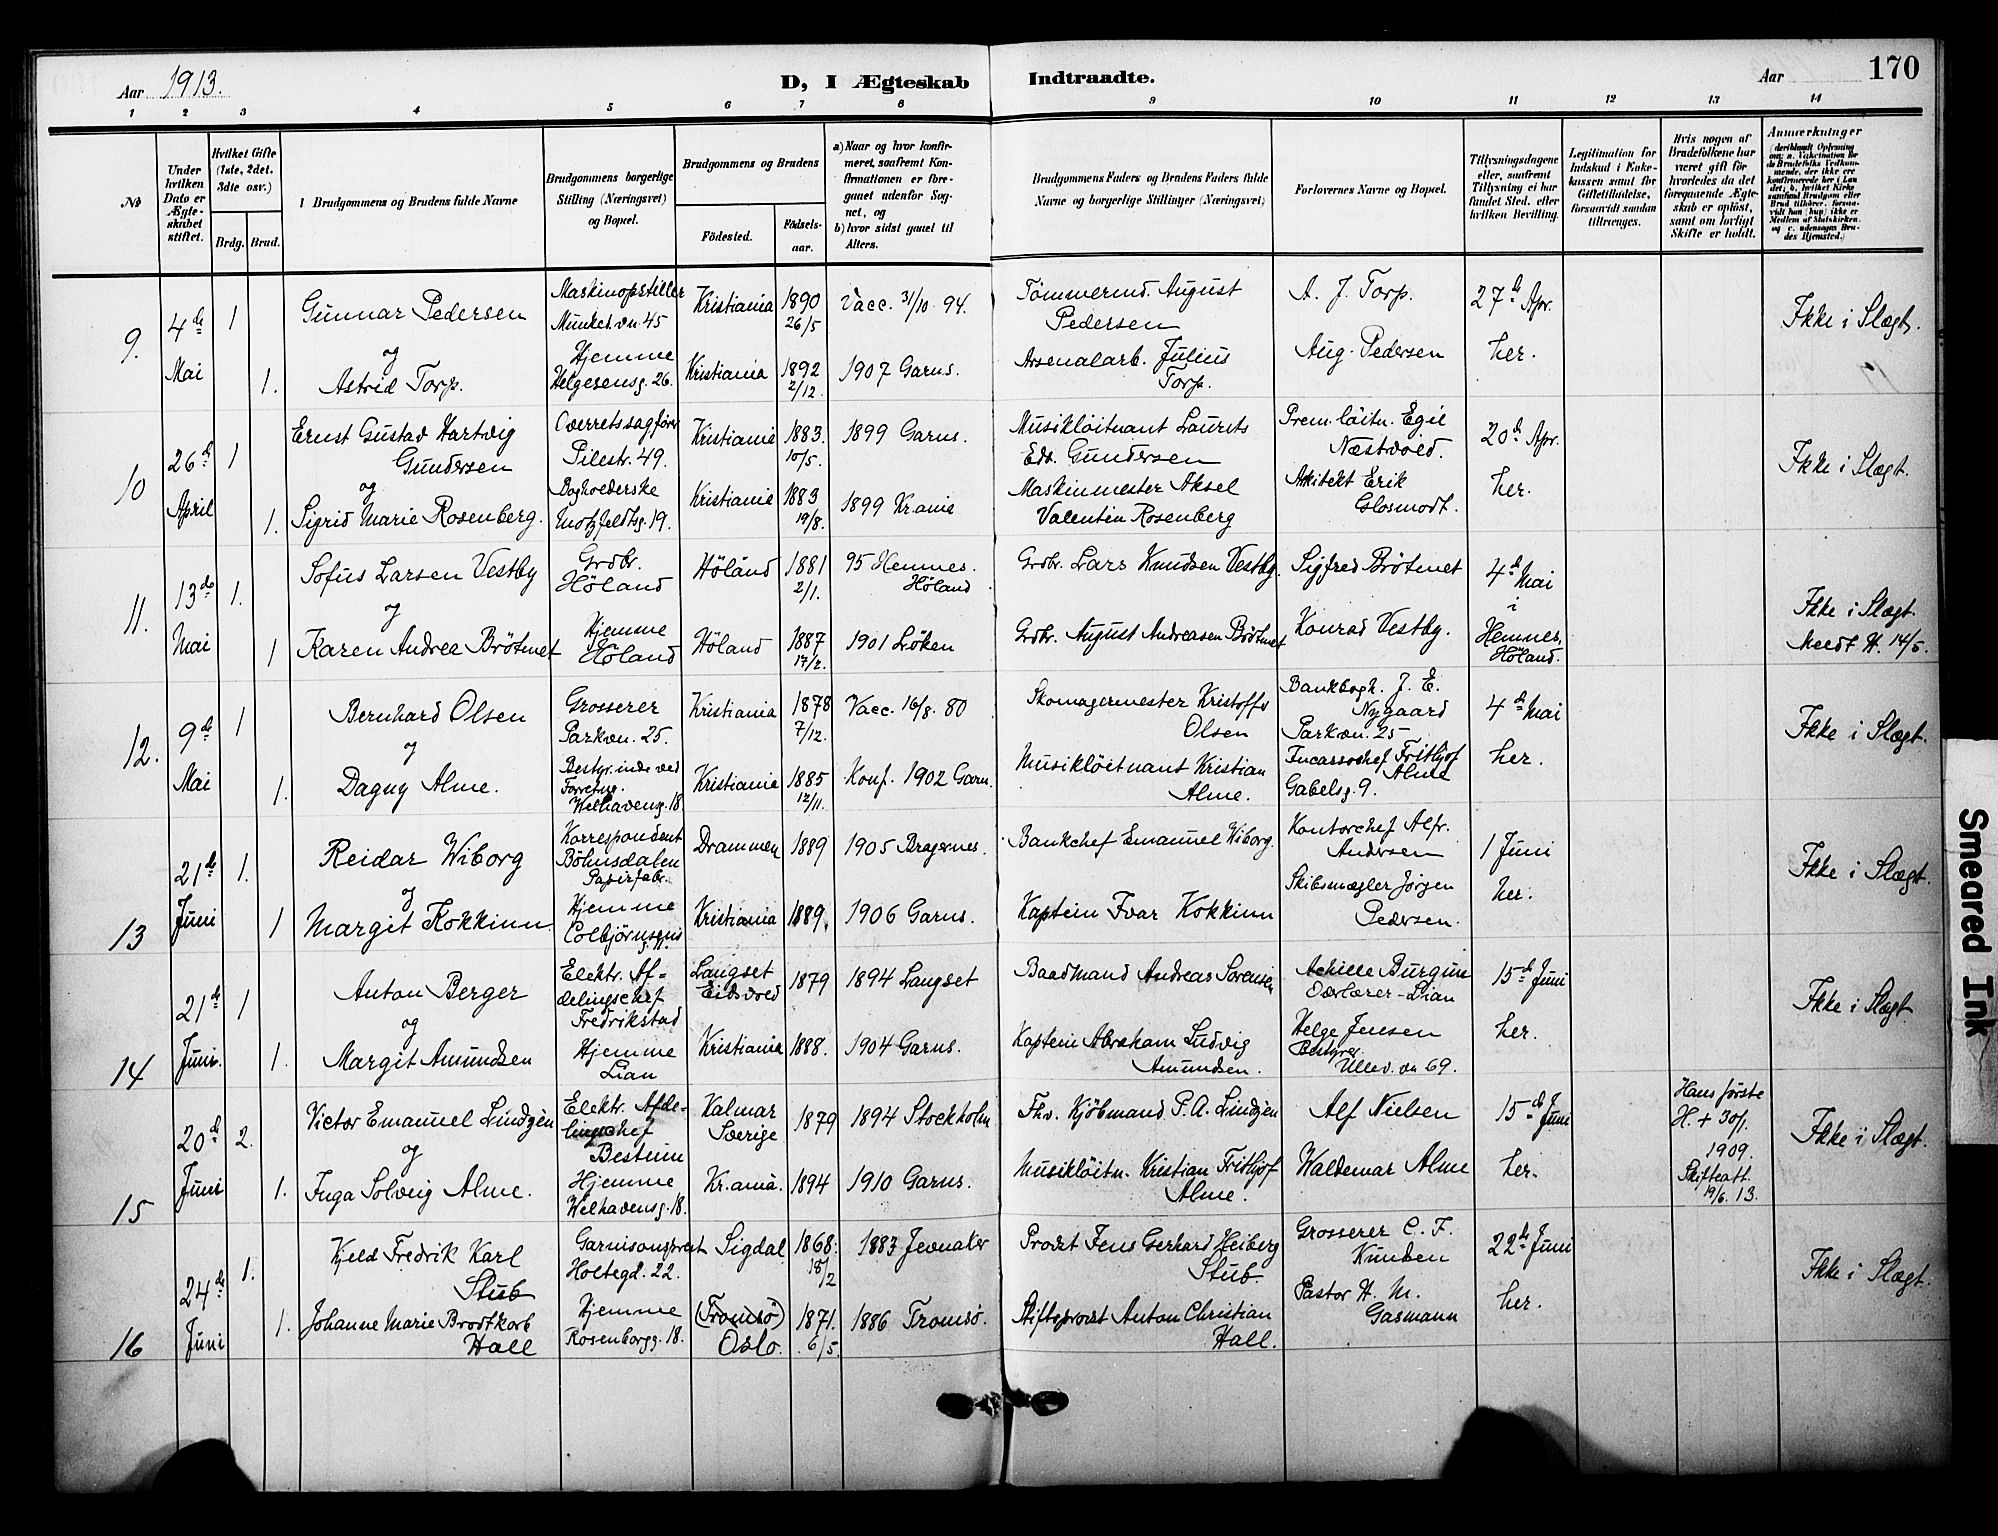 Aar 1913.
D, I Ægteskab Indtraadte.
Aar
170
1 2 3 4 5 6 7 8 9 10 11 12 13 14
No
Under hvilken Dato er Ægteskabet stiftet.
Hvilket Gifte (1ste, 2det, 3dte osv.)
Brdg. Brud.
Brudgommens og Brudens fulde Navne
Brudgommens borgerlige Stilling (Næringsvei) og Bopæl.
Brudgommens og Brudens
Fødested. Fødselsaar.
a) Naar og hvor konfirmeret, saafremt Konfirmationen er foregaaet udenfor Sognet, og
b) hvor sidst gaaet til Alters.
Brudgommens Faders og Brudens Faders fulde Navne og borgerlige Stillinger (Næringsvei)
Forlovernes Navne og Bopæl.
Tillysningsdagene eller, saafremt Tillysning ei har fundet Sted, efter hvilken Bevilling.
Legitimation for Indskud i Enkekassen samt for Giftetilladelse, forsaavidt saadan tiltrænges.
Hvis nogen af Brudefolkene har været gift før hvorledes da det foregaaende Ægteskab er opløst, samt om lovligt Skifte er holdt.
Anmerkninger
9. 4de Mai
1 Gunnar Pedersen
Maskinopstiller Munked.vn. 45
Kristiania 1890 26/5
Vacc. 31/10 94.
Tömmermd. August Pedersen
A. J. Torp.
27de Apr. her.
Ikke i Slægt.
og
1. Astrid Torp.
Hjemme Helgesensg. 26.
Kristiania 1892 2/12
1907 Garns.
Arsenalarb. Julius Torp.
Aug. Pedersen
10 26de April
1 Ernst Gustav Hartvig Gundersen
Overretssagförer Pilestr. 49.
Kristiania 1883. 10/5.
1899 Garns.
Musiklöitnant Laurits Edv. Gundersen
Prem. löitn. Egil Næstvold.
20de Apr. her.
Ikke i Slægt.
og
1. Sigrid Marie Rosenberg.
Bogholderske Motzfeldtsg. 19.
Kristiania 1883 19/8.
1899 Kr.ania
Maskinmester Aksel Valentin Rosenberg
Arkitekt Erik Glosmodt.
11. 13de Mai
1. Sofus Larsen Vestby
Grdbr. Höland
Höland 1881 2/1.
95 Hemnes. Höland
Grdbr. Lars Knudsen Vestby.
Sigfred Brötmet
4de Mai i Hemnes, Höland.
Ikke i Slægt.
Meedt H. 14/5.
og
1 Karen Andree Brötmet
Hjemme Höland
Höland 1887 17/2.
1901 Löken
Grdbr. August Andreasen Brötmet
Konrad Vestby.
12. 9de Mai
1 Bernhard Olsen
Grosserer Parkvn. 25.
Kristiania 1878 7/12.
Vacc. 16/8. 80
Skomagermester Kristoffer Olsen
Bankbogh. J. E. Nygaard Parkvn. 25
4de Mai her.
Ikke i Slægt.
og
1. Dagny Alme.
Bestyrinde ved Forretng. Welhavensg. 18.
Kristiania 1885 12/11.
Konf. 1902 Garn.
Musiklöitnant Kristian Alme.
Incassochef Frithjof Alme Gabelsg. 9.
13 21de Juni
1. Reidar Wiborg
Korrespondent Böhnsdalen Papirfabr.
Drammen 1889
1905 Bragernes.
Bankchef Emanuel Wiborg.
Kontorchef Alfr. Andersen
1 Juni her.
Ikke i Slægt.
og
1 Margit Kokkinn.
Hjemme Colbjörnsens g. 11.
Kristiania 1889.
1906 Garns.
Kaptein Ivar Kokkinn
Skibsmægler Jörgen Pedersen.
14 21de Juni.
1 Anton Berger
Elektr. Afdelingschef Fredrikstad
Langset Eidsvold 1879
1894 Langset
Baadmand Andreas Sörensen
Achille Burgun Overlærer - Lian
15de Juni her.
Ikke i Slægt
og
1. Margit Amundsen
Hjemme Lian
Kristiania 1888.
1904 Garns.
Kaptein Abraham Ludvig Amundsen.
Helge Jensen Bestyrer Ullev. vn 69.
15 20de Juni
2. Victor Emanuel Lindgén
Elektr. Afdelingschef Bestum
Kalmar Sverige 1879
1894 Stockholm
Fhv. Kjöbmand P. A. Lindgén
Alf Nielsen
15de Juni her.
Hans förste H. + 30/1. 1909. Skifteatt. 19/6. 13.
Ikke i Slægt.
og
1. Inga Solveig Alme.
Hjemme Welhavensg. 18.
Kr.ania. 1894
1910 Garns.
Musiklöitn. Kristian Frithjof Alme.
Waldemar Alme
16 24de Juni
1. Kjeld Fredrik Karl Stub
Garnisonsprest Holtegd. 22.
Sigdal 1868. 18/2
1883 Jevnaker
Provst Jens Gerhard Heiberg Stub.
Grosserer C. F. Knudsen
22de Juni her.
Ikke i Slægt.
1. Johanne Marie Brodtkorb Hall
Hjemme Rosenborgg. 18.
(Tromsö) Oslo. 1871. 6/5.
1886 Tromsö.
Stiftsprovst Anton Christian Hall.
Pastor H. M. Gasmann
Smeared Ink